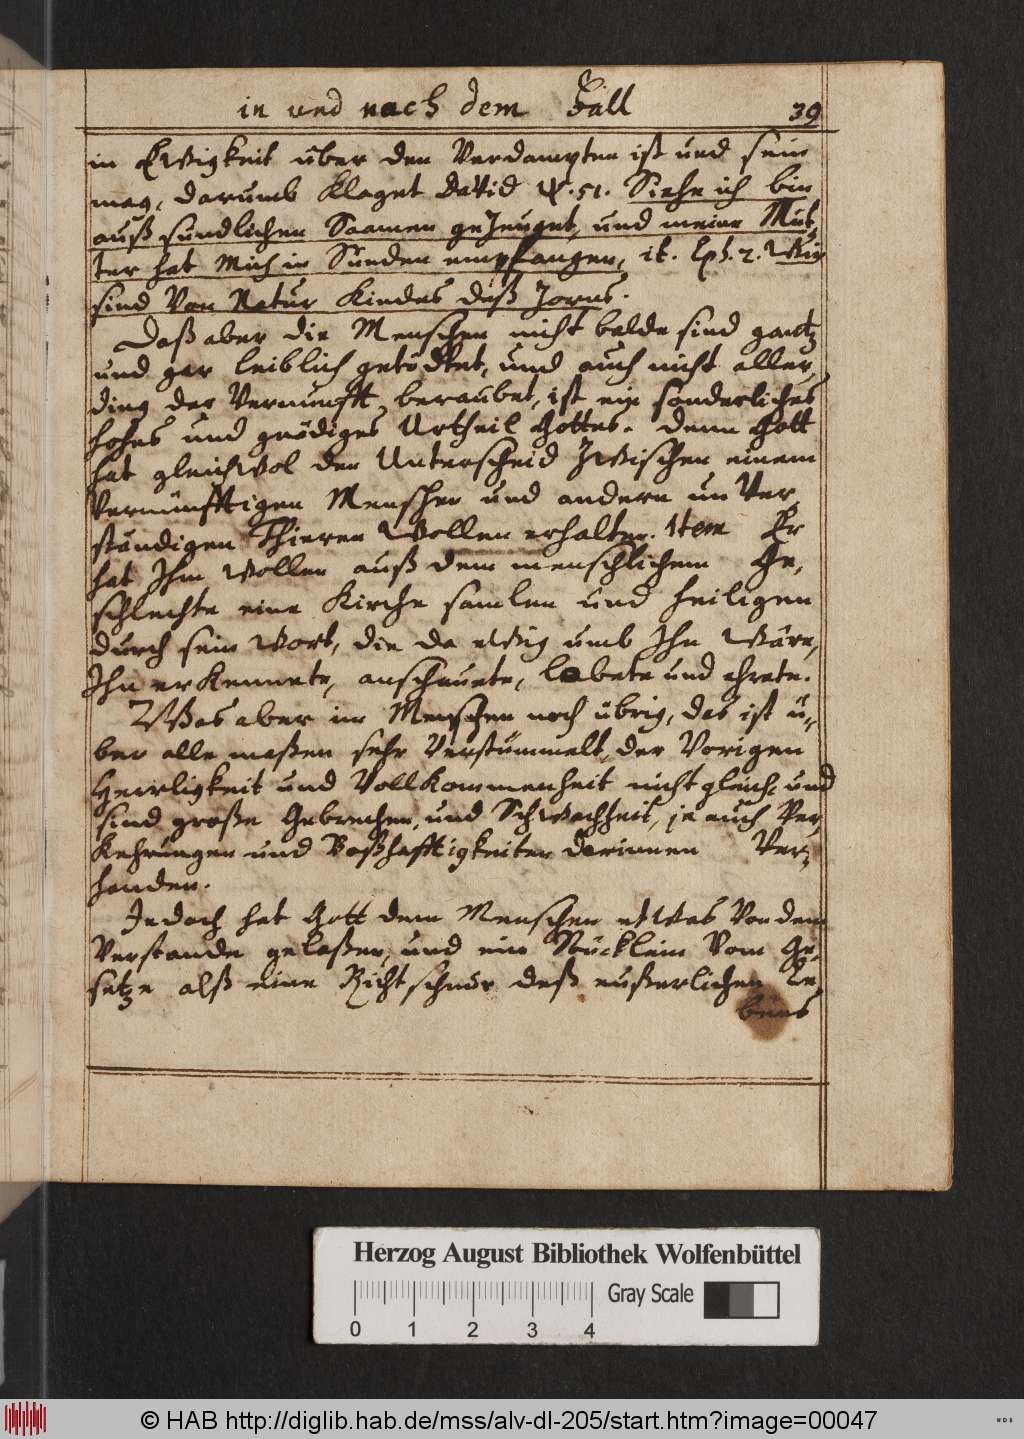 in und nach dem Fall 39
in Ewigkeit über den Verdampten ist und sein
mag, darumb klaget David ψ. 51. Siehe ich bin
auß sündlichen Saamen gezeuget, und meine Mut-
ter hat Mich in Sünden empfangen, it. Eph. 2. Wir
sind Von Natur Kindes deß Zorns.
Daß aber die Menschen nicht balde sind gantz
und gar leiblich getödtet, und auch nicht aller-
ding der Vernunfft beraubet, ist ein sonderliches
hohes und gnädiges Urtheil Gottes. Denn Gott
hat gleichwol den Unterscheid Zwischen einem
Vernünfftigen Menschen und andern unVer-
ständigen Thieren Wollen erhalten. Item Er
hat Ihm Wollen auß dem menschlichem Ge-
schlechte eine Kirche samlen und heiligen
durch sein Wort, die da eWig umb Ihn Wäre,
Ihn erkennete, anschauete, lobete und ehrete.
Was aber im Menschen noch übrig, das ist ü-
ber alle maßen sehr Verstümmelt, der Vorigen
Herrligkeit und Vollkommenheit nicht gleich, und
sind große Gebrechen, und SchWachheit, ja auch Ver-
kehrungen und Boßhafftigkeiten darinnen Ver-
handen.
Jedoch hat Gott dem Menschen etWas Von dem
Verstande gelaßen, und ein Stücklein Vom Ge-
setze alß eine Richtschnur deß eußerlichen Le-
bens
Herzog August Bibliothek Wolfenbüttel
0 1 2 3 4 Gray Scale
© HAB http://diglib.hab.de/mss/alv-dl-205/start.htm?image=00047